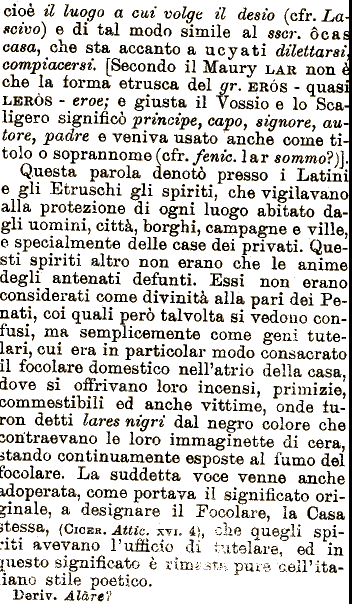 cioè il luogo a cui volge il desio (cfr. La-
scivo) e di tal modo simile al sscr. ôcas
casa, che sta accanto a ucyati dilettarsi,
compiacersi. [Secondo il Maury LAR non è
che la forma etrusca del gr. ERÓS - quasi
LERÒS - eroe; e giusta il Vossio e lo Sca-
ligero significò principe, capo, signore, au-
tore, padre e veniva usato anche come ti-
tolo o soprannome (cfr. fenic. lar sommo?)].
Questa parola denotò presso i Latini
e gli Etruschi gli spiriti, che vigilavano
alla protezione di ogni luogo abitato da-
gli uomini, città, borghi, campagne e ville,
e specialmente delle case dei privati. Que-
sti spiriti altro non erano che le anime
degli antenati defunti. Essi non erano
considerati come divinità alla pari dei Pe-
nati, coi quali però talvolta si vedono con-
fusi, ma semplicemente come geni tute-
lari, cui era in particolar modo consacrato
il focolare domestico nell'atrio della casa,
dove si offrivano loro incensi, primizie,
commestibili ed anche vittime, onde fu-
ron detti lares nigri dal negro colore che
contraevano le loro immaginette di cera,
stando continuamente esposte al fumo del
focolare. La suddetta voce venne anche
adoperata, come portava il significato ori-
ginale, a designare il Focolare, la Casa
stessa, (CICER. Attic. XVI. 4), che quegli spi-
riti avevano l'ufficio di tutelare, ed in
questo significato è rimasta pure nell'ita-
liano stile poetico.
Deriv. Alàre?